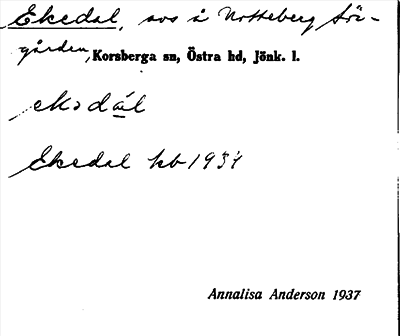 Ekedal, avs å Notteberg Sör-
gården, Korsberga sn, Östra hd, Jönk. l.
ekədál
Ekedal kb 1934
Annalisa Anderson 1937